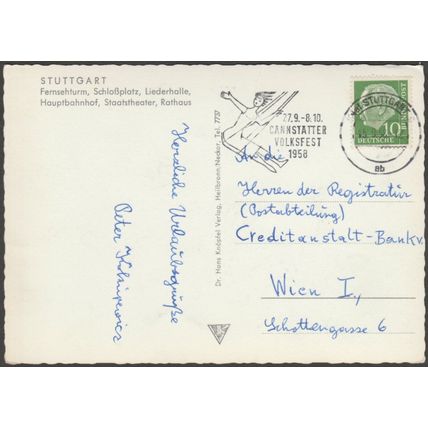 STUTTGART
Fernsehturm, Schloßplatz, Liederhalle,
Hauptbahnhof, Staatstheater, Rathaus
Herzliche Urlaubsgrüße
Peter
Dr. Hans Knöpfel Verlag, Heilbronn/Neckar, Tel. 7757
27.9.-8.10.
CANNSTATTER
VOLKSFEST
1958
STUTTGART
ab
10
DEUTSCHE
POST
An die
Herren der Registratur
(Postabteilung)
Creditanstalt-Bankv.
Wien I.,
Schottengasse 6